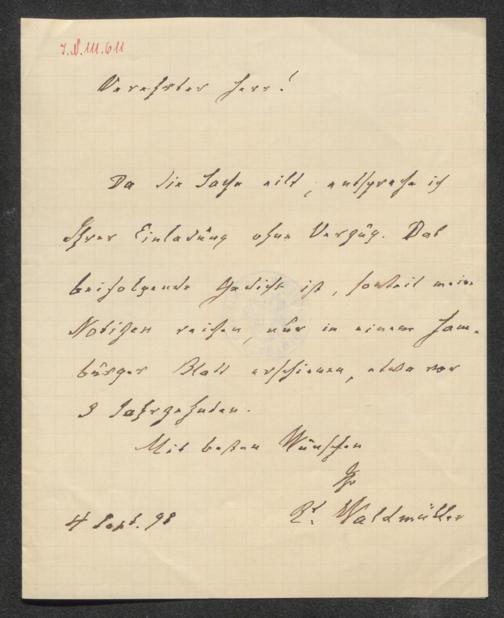 J.N. 111.611
Verehrter Herr!
Da die Sache eilt, entspreche ich
Ihrer Einladung ohne Verzug. Das
beifolgende Gedicht ist, soweit meine
Notizen reichen, nur in einem Ham-
burger Blatt erschienen, etwa vor
3 Jahrzehnten.
Mit besten Wünschen
Ihr
Ed. Waldmüller
4 Sept. 98